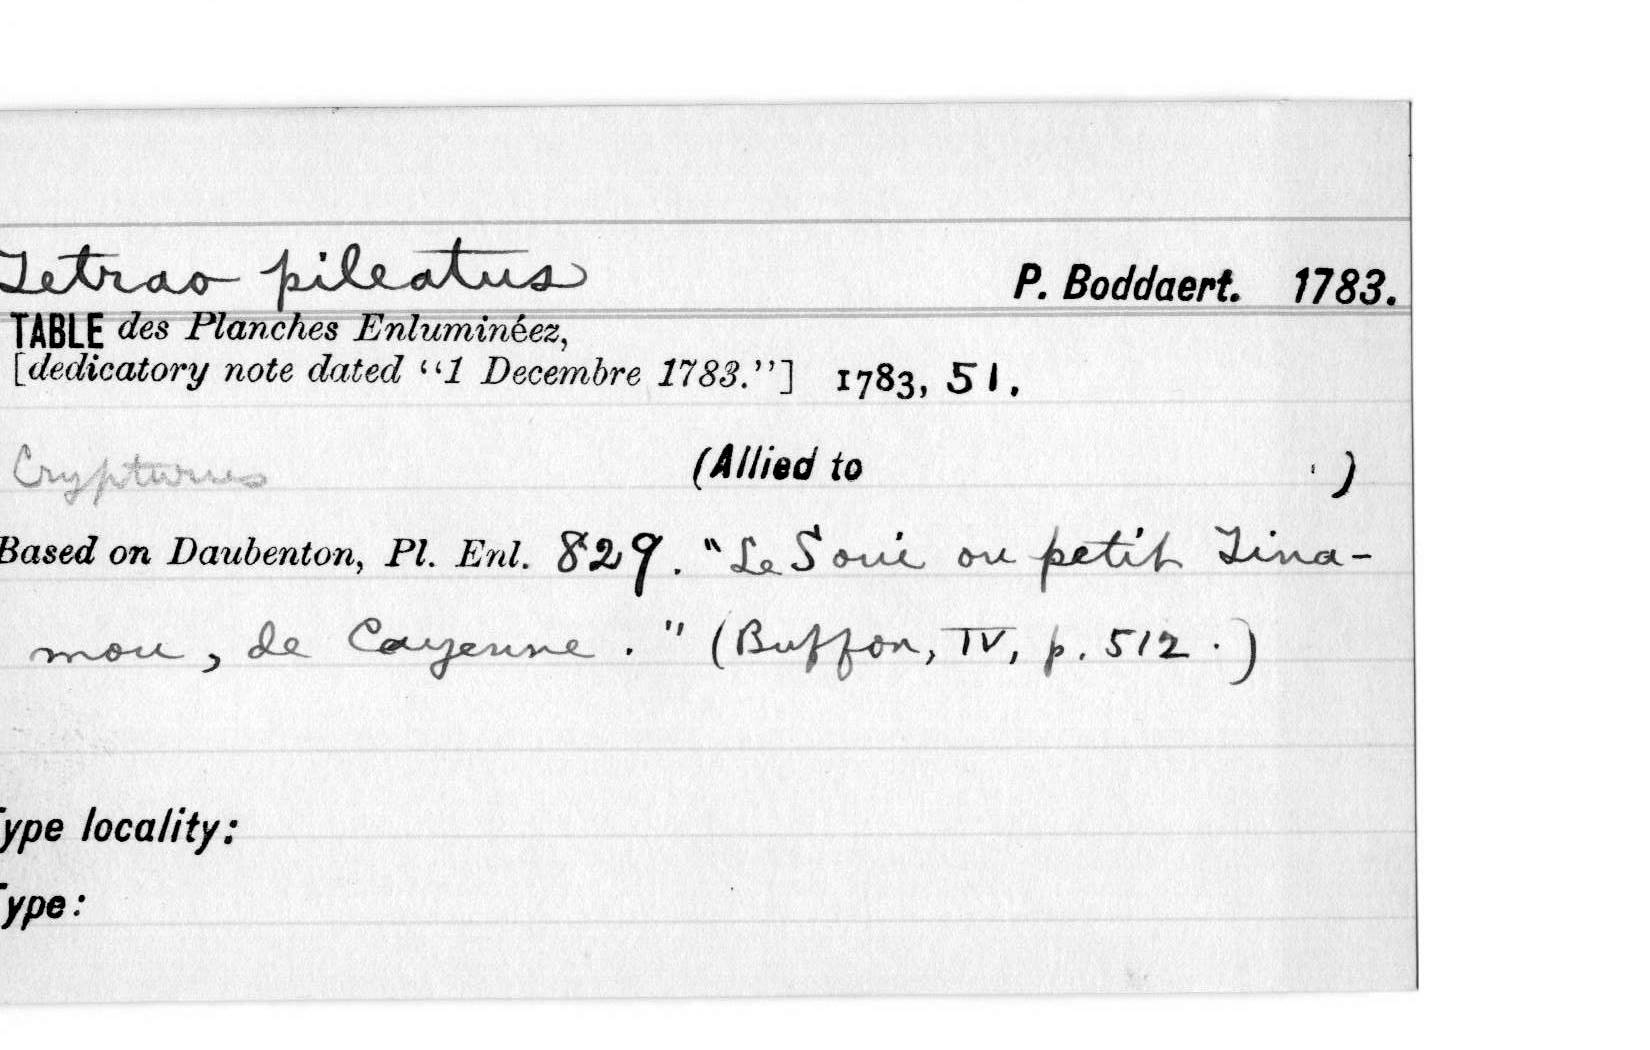 Tetrao pileatus P. Boddaert. 1783.
TABLE des Planches Enluminéez,
[dedicatory note dated "1 Decembre 1783."] 1783, 51.
Crypturus (Allied to )
Based on Daubenton, Pl. Enl. 829. "Le Soui ou petit Tina-
mou, de Cayenne." (Buffon, IV, p. 512.)
Type locality:
Type: